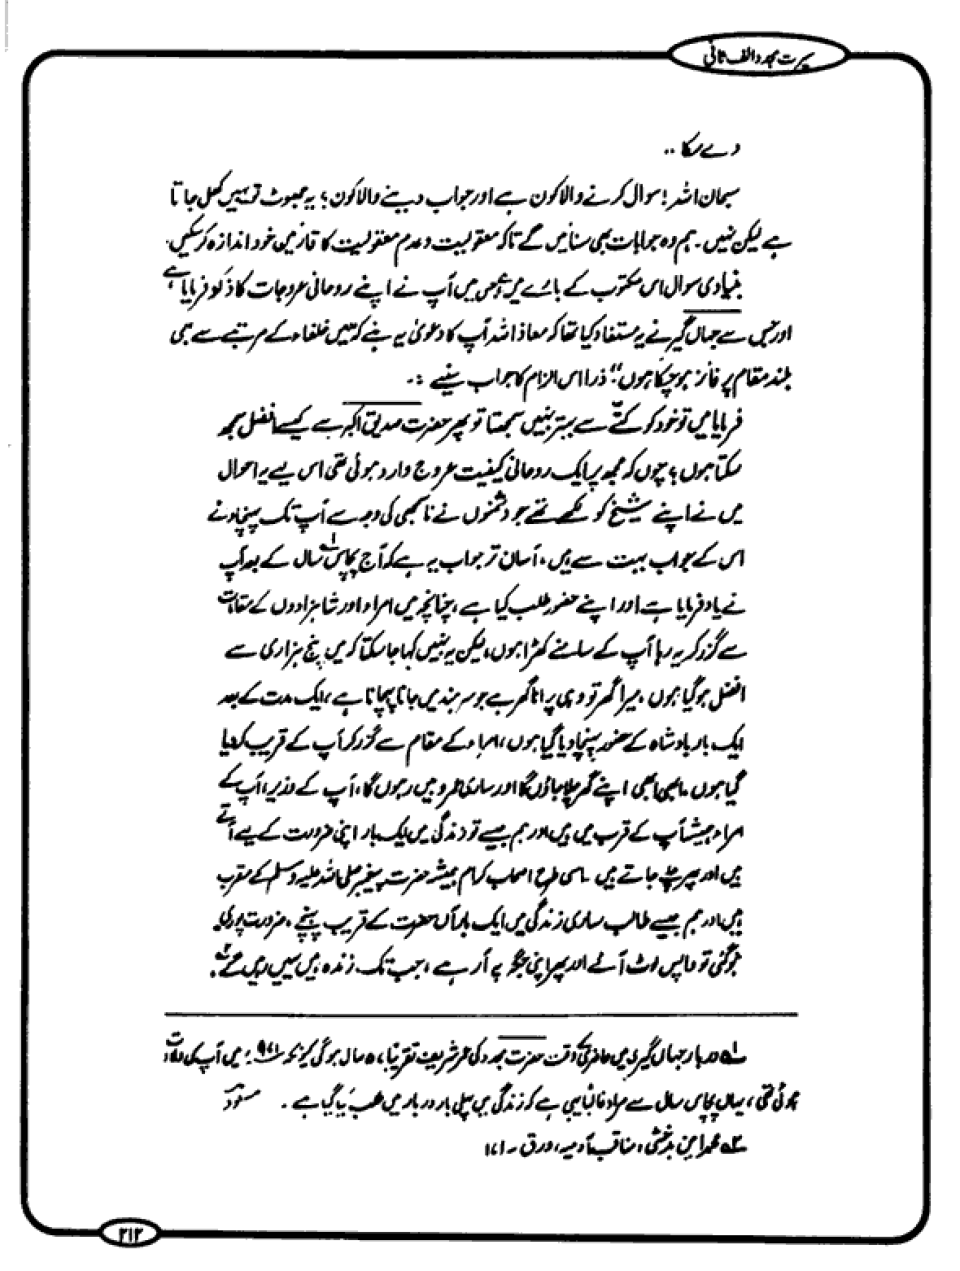 سیرت مجدد الف ثانی
دے سکا ..
سبحان اللہ! سوال کرنے والا کون ہے اور جواب دینے والا کون؛ یہ جھوٹ تو یہیں کھل جاتا
ہے لیکن نہیں۔ ہم وہ جوابات بھی سنائیں گے تاکہ معقولیت و عدم معقولیت کا قارئین خود اندازہ کر سکیں
بنیادی سوال اس مکتوب کے بارے میں جس میں آپ نے اپنے روحانی عروجات کا ذکر فرمایا ہے
اور جس سے جہاں گیر نے یہ مستفاد کیا تھا کہ معاذ اللہ آپ کا دعویٰ یہ ہے کہ میں خلفاء کے مرتبے سے بھی
بلند مقام پر فائز ہو چکا ہوں" ذرا اس الزام کا جواب سنیے :۔
فرمایا میں تو خود کو کتّے سے بہتر نہیں سمجھتا تو پھر حضرت صدیق اکبر سے کیسے افضل سمجھ
سکتا ہوں؛ چوں کہ مجھ پر ایک روحانی کیفیت عروج وارد ہوئی تھی اس لیے یہ احوال
میں نے اپنے شیخ کو لکھے تھے جو دشمنوں نے ناسمجھی کی وجہ سے آپ تک پہنچا دئے
اس کے جواب بہت سے ہیں، آسان تر جواب یہ ہے کہ آج پچاس۱؎ سال کے بعد آپ
نے یاد فرمایا ہے اور اپنے حضور طلب کیا ہے، چنانچہ میں امراء اور شاہزادوں کے مقامات
سے گزر کر یہ رہا آپ کے سامنے کھڑا ہوں، لیکن یہ نہیں کہا جا سکتا کہ میں پنج ہزاری سے
افضل ہو گیا ہوں، میرا گھر تو وہی پرانا گھر ہے جو سرہند میں جانا پہچانا ہے، ایک مدت کے بعد
ایک بار بادشاہ کے حضور پہنچا دیا گیا ہوں، امراء کے مقام سے گزر کر آپ کے قریب کر دیا
گیا ہوں، ابھی ابھی اپنے گھر چلا جاؤں گا اور ساری عمر وہیں رہوں گا، آپ کے وزیر، آپ کے
امراء ہمیشہ آپ کے قرب میں ہیں اور ہم جیسے تو زندگی میں ایک بار اپنی ضرورت کے لیے آتے
ہیں اور پھر چلے جاتے ہیں۔ اسی طرح اصحاب کرام ہمیشہ حضرت پیغمبر صلی اللہ علیہ وسلم کے مقرب
ہیں اور ہم جیسے طالب ساری زندگی میں ایک بار آں حضرت کے قریب پہنچے، ضرورت پوری
ہو گئی تو واپس لوٹ آئے اور پھر اپنی جگہ پر آ رہے، جب تک زندہ ہیں یہیں رہیں گے۲؎.
۱؎ دربار جہاں گیری میں حاضری کے وقت حضرت مجدد کی عمر شریف تقریباً ۵۰ سال ہوئی کیونکہ ۹۷۱ھ میں آپ کی ولادت
ہوئی تھی، یہاں پچاس سال سے مراد غالباً یہی ہے کہ زندگی میں پہلی بار دربار میں طلب کیا گیا ہے۔ مسعود
۲؎ محمد امین بدخشی، مناقب آدمیہ، ورق۔ ۱۷۱
۲۱۲